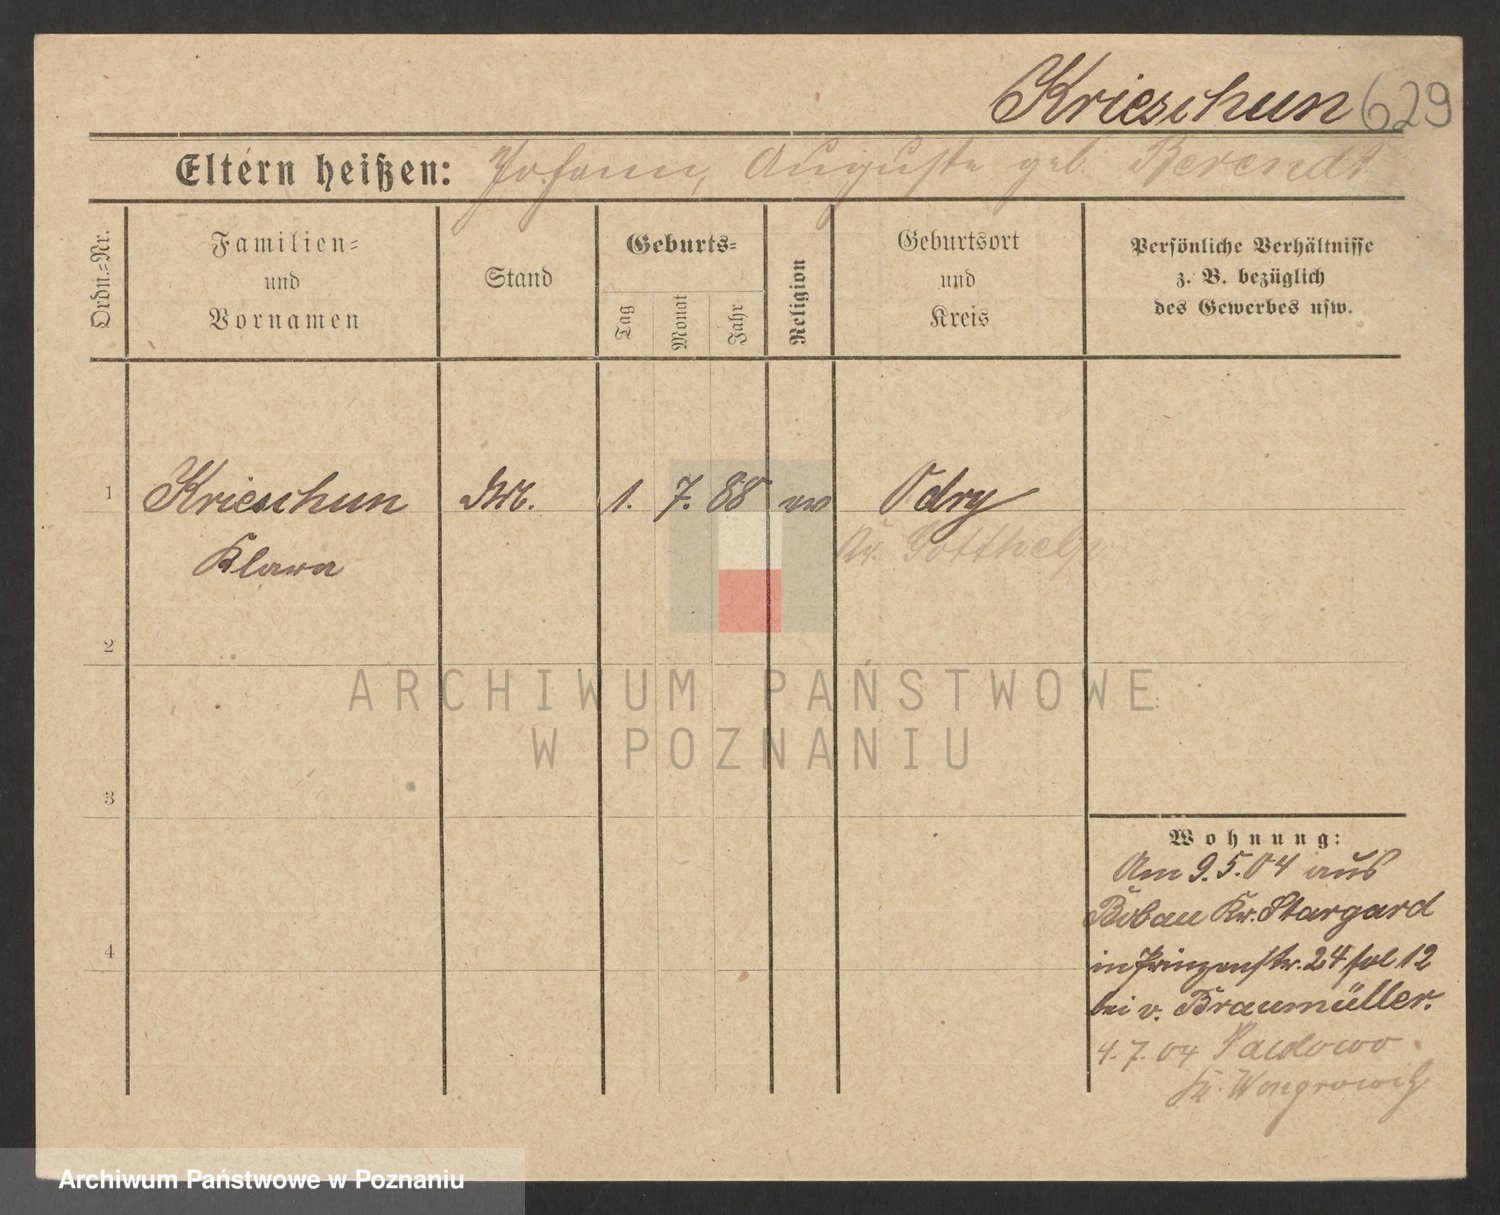 Krieschun 629
Eltern heißen: Johann, Auguste geb. Berendt
Ordn.-Nr.
Familien-
und
Vornamen
Stand
Geburts-
Tag
Monat
Jahr
Religion
Geburtsort
und
Kreis
Persönliche Verhältnisse
z. B. bezüglich
des Gewerbes usw.
1 Krieschun 1. 7. 88 Odry
Klara
Kr.
2
3
4
ARCHIWUM PAŃSTWOWE
W POZNANIU
Wohnung:
Am 9.5.04 aus
Bobau Kr. Stargard
in Prinzenstr. 24 fol 12
bei v. Braumüller.
4.7.04
Kr. Wongrowitz
Archiwum Państwowe w Poznaniu